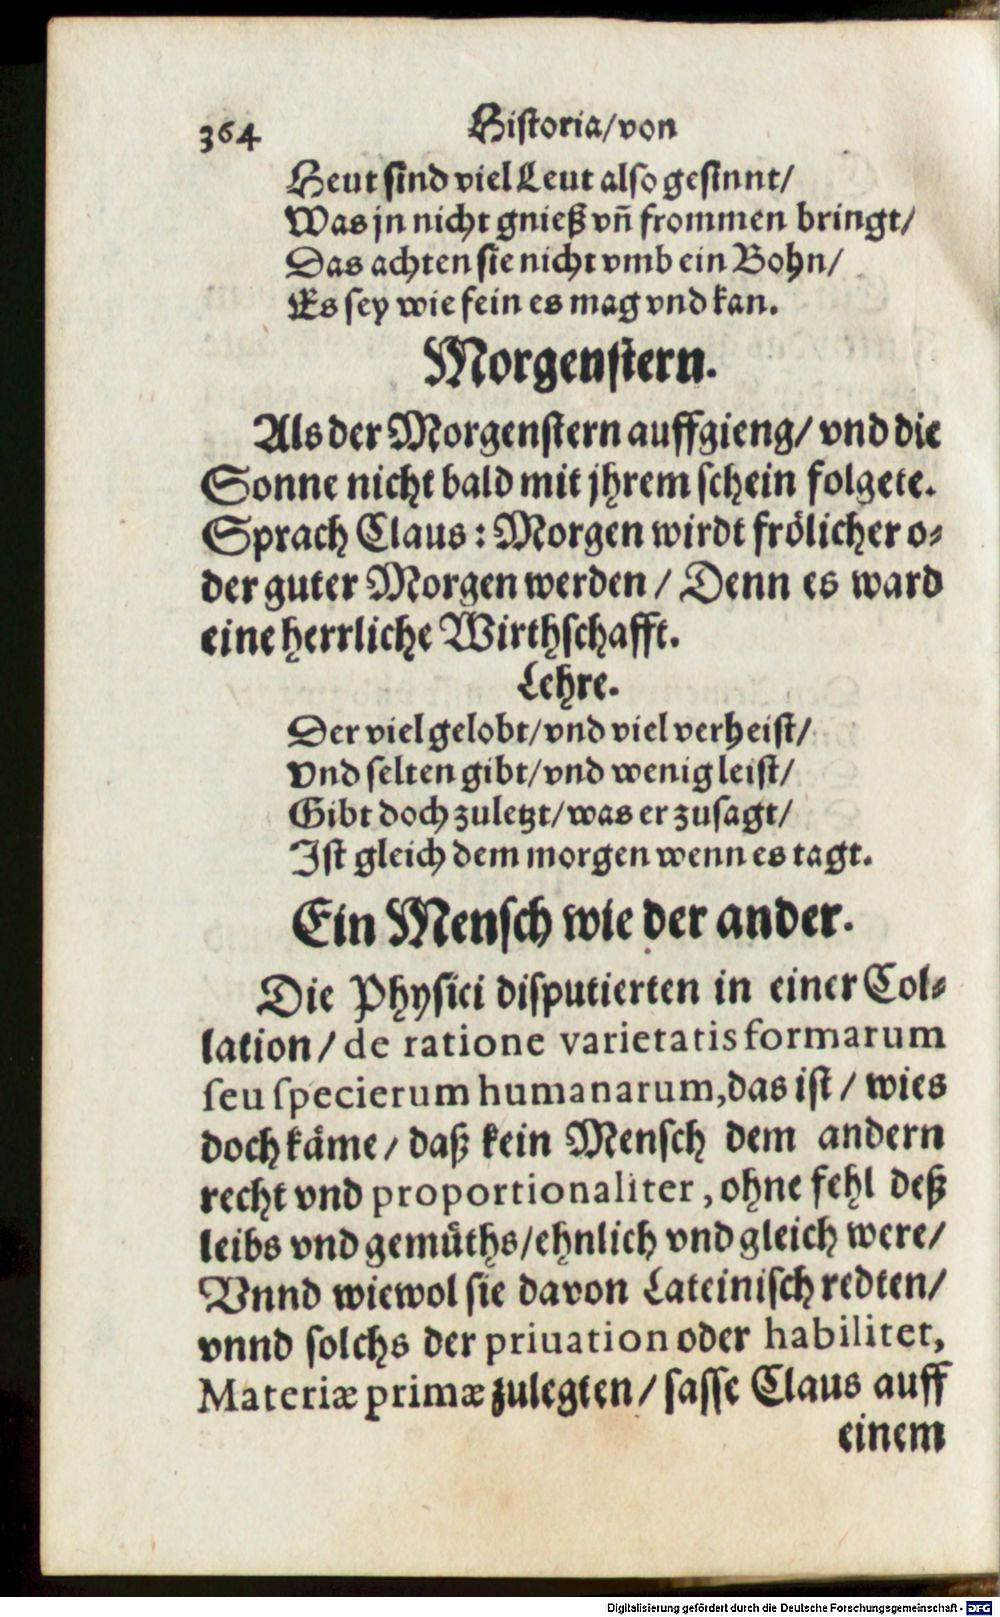 364 Historia/von
Heut sind viel Leut also gesinnt/
Was jn nicht gnieß vñ frommen bringt/
Das achten sie nicht vmb ein Bohn/
Es sey wie fein es mag vnd kan.
Morgenstern.
Als der Morgenstern auffgieng/ vnd die
Sonne nicht bald mit jhrem schein folgete.
Sprach Claus: Morgen wirdt frölicher o-
der guter Morgen werden/ Denn es ward
eine herrliche Wirthschafft.
Lehre.
Der viel gelobt/vnd viel verheist/
Vnd selten gibt/vnd wenig leist/
Gibt doch zuletzt/was er zusagt/
Ist gleich dem morgen wenn es tagt.
Ein Mensch wie der ander.
Die Physici disputierten in einer Col-
lation/ de ratione varietatis formarum
seu specierum humanarum, das ist/ wies
doch käme/ daß kein Mensch dem andern
recht vnd proportionaliter, ohne fehl deß
leibs vnd gemüths/ehnlich vnd gleich were/
Vnnd wiewol sie davon Lateinisch redten/
vnnd solchs der priuation oder habilitet,
Materiæ primæ zulegten/ sasse Claus auff
einem
Digitalisierung gefördert durch die Deutsche Forschungsgemeinschaft - DFG